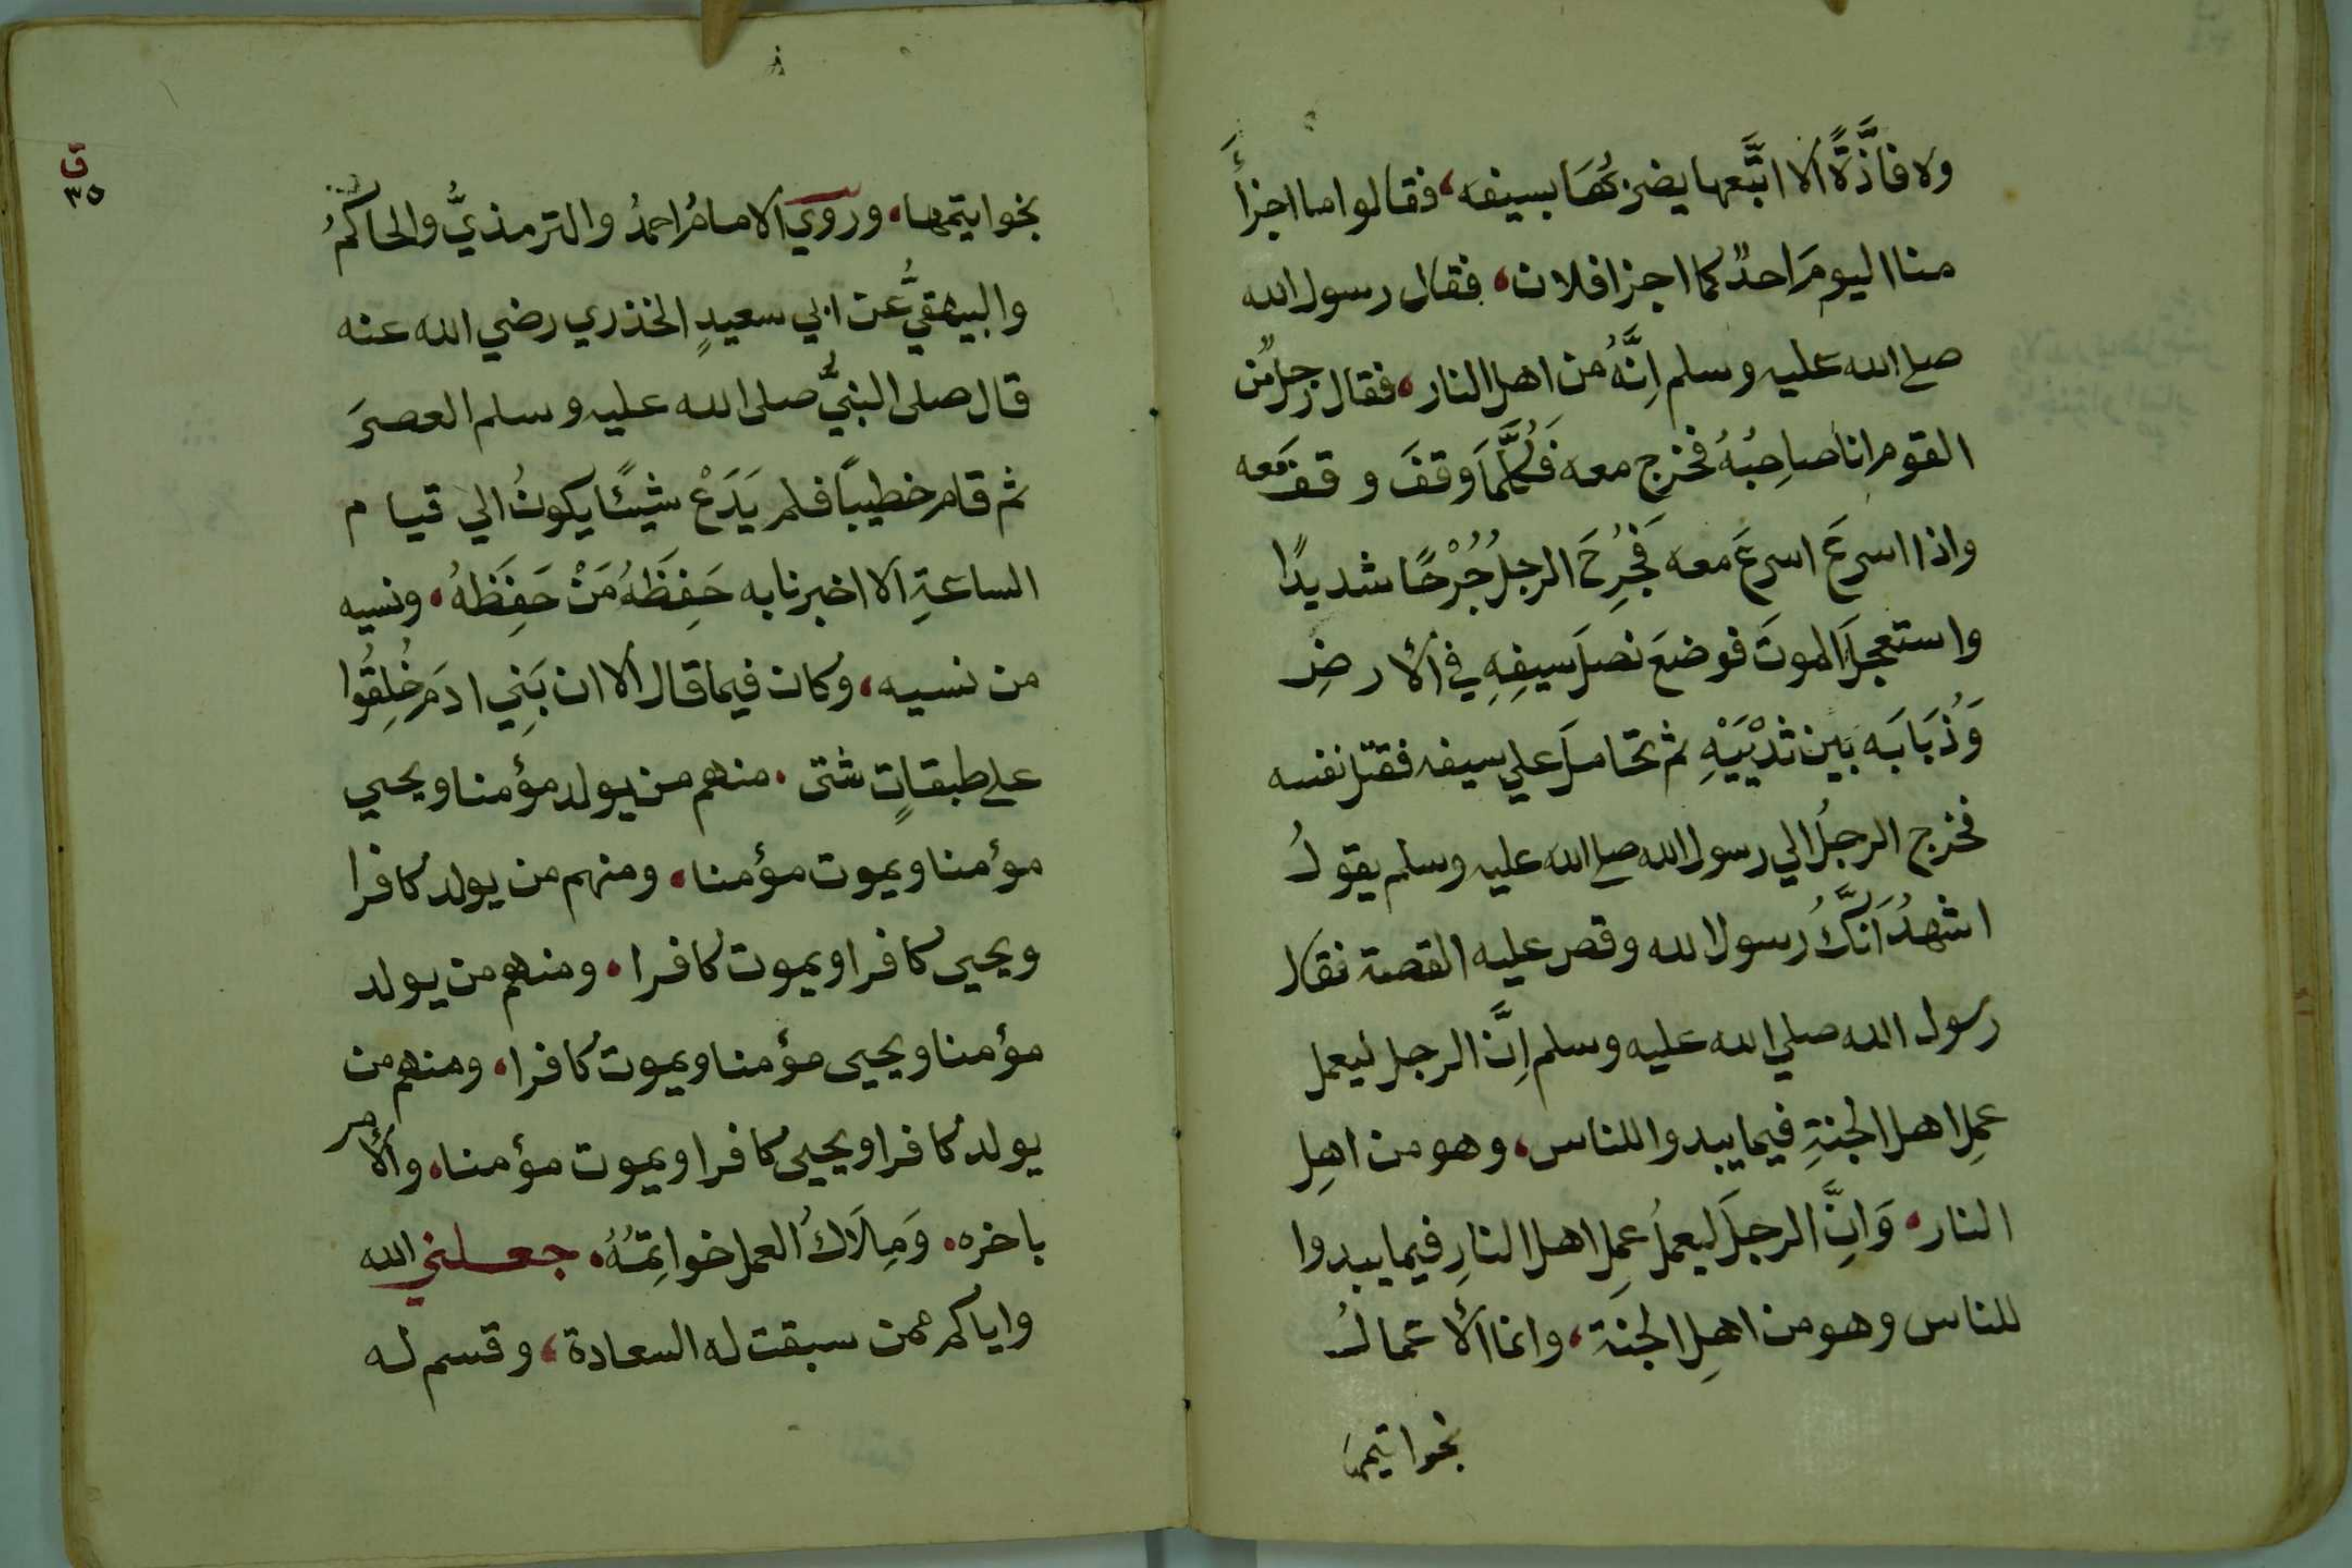 ولا فاذَّةً الا اتَّبعها يضربُهَا بسيفه، فقالوا ما اجزأَ
منا اليومَ احدٌ كما اجزا فلان، فقال رسول الله
صلى الله عليه وسلم اِنَّهُ من اهل النار، فقال رجلٌ من
القوم انا صاحِبُهُ فخرج معه فَكُلَّمَا وقفَ وقف معه
واذا اسرعَ اسرعَ معه فَجُرِحَ الرجلُ جُرْحًا شديدًا
واستعجلَ الموتَ فوضعَ نصلَ سيفِهِ في الأرضِ
وَذُبَابَه بين ثدْيَيْهِ ثم تحاملَ علي سيفه فقتل نفسه
فخرج الرجلُ الي رسول الله صلى الله عليه وسلم يقولُ
اشهدُ اَنَّكَ رسول الله وقص عليه القصة فقال
رسول الله صلي الله عليه وسلم اِنَّ الرجل ليعمل
عملِ اهل الجنةِ فيما يبدوا للناس، وهو من اهلِ
النار، وَاِنَّ الرجلَ ليعملُ عملِ اهل النارِ فيما يبدوا
للناس وهو من اهلِ الجنة، وانما الأعمالُ
بخواتيمها
ق
٣٥
بخواتيمها، وروي الامامُ احمدُ والترمذيُّ والحاكمُ
والبيهقيُّ عن ابي سعيدٍ الخذري رضي الله عنه
قال صلى النبيُّ صلى الله عليه وسلم العصرَ
ثم قام خطيبًا فلم يَدَعْ شيئًا يكونُ الي قيام
الساعةِ الا اخبرنا به حَفِظَهُ مَنْ حَفِظَهُ، ونسيه
من نسيه، وكان فيما قال الا ان بَنِي ادمَ خُلِقُوا
على طبقاتٍ شتى، منهم من يولد مؤمنا ويحيي
مؤمنا ويموت مؤمنا، ومنهم من يولد كافرا
ويحيى كافرا ويموت كافرا، ومنهم من يولد
مؤمنا ويحيى مؤمنا ويموت كافرا، ومنهم من
يولد كافرا ويحيى كافرا ويموت مؤمنا، والأمر
باخره، وَمِلَاكُ العمل خواتِمُهُ، جعلني الله
واياكم ممن سبقت له السعادة، وقسم له